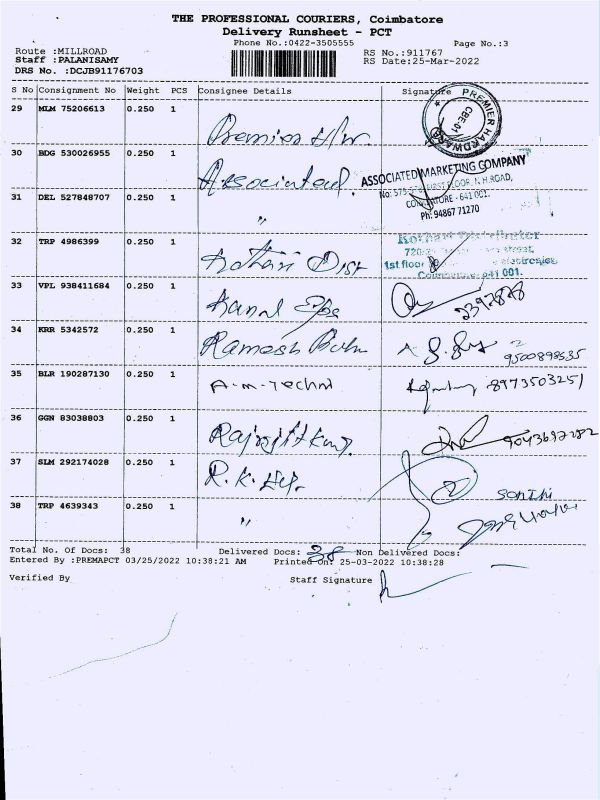 THE PROFESSIONAL COURIERS, Coimbatore
Delivery Runsheet - PCT
Phone No.:0422-3505555
Page No.:3
Route :MILLROAD
Staff :PALANISAMY
DRS No. :DCJB91176703
RS No.:911767
RS Date:25-Mar-2022
S No Consignment No Weight PCS Consignee Details Signature
29 MLM 75206613 0.250 1 Premier H/w.
PREMIER HARDWARE CBE-01
30 BDG 530026955 0.250 1 Associated.
ASSOCIATED MARKETING COMPANY
FIRST FLOOR, N.H.ROAD,
COIMBATORE - 641 001.
Ph: 94867 71270
31 DEL 527848707 0.250 1 "
32 TRP 4986399 0.250 1 Kothari Dist
Kothari Distributor
1st floor
641 001.
33 VPL 938411684 0.250 1 2392828
34 KRR 5342572 0.250 1 Ramesh 9500898535
35 BLR 190287130 0.250 1 A.m.Techni 8973503251
36 GGN 83038803 0.250 1 9043692282
37 SLM 292174028 0.250 1 R.K.
38 TRP 4639343 0.250 1 "
Total No. Of Docs: 38 Delivered Docs: 38 Non Delivered Docs:
Entered By :PREMAPCT 03/25/2022 10:38:21 AM Printed On: 25-03-2022 10:38:28
Verified By Staff Signature